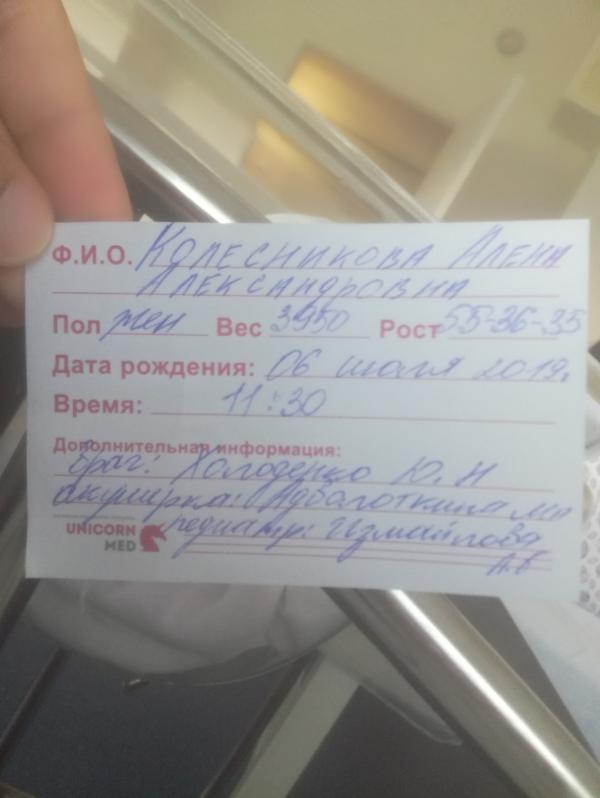 Ф.И.О. Колесникова Алена
Александровна
Пол жен Вес 3950 Рост 55-36-35
Дата рождения: 06 июля 2019.
Время: 11:30
Дополнительная информация:
Врач: Холоденко Ю. Н
акушерка:
UNICORN педиатр: Измайлова
MED А.В